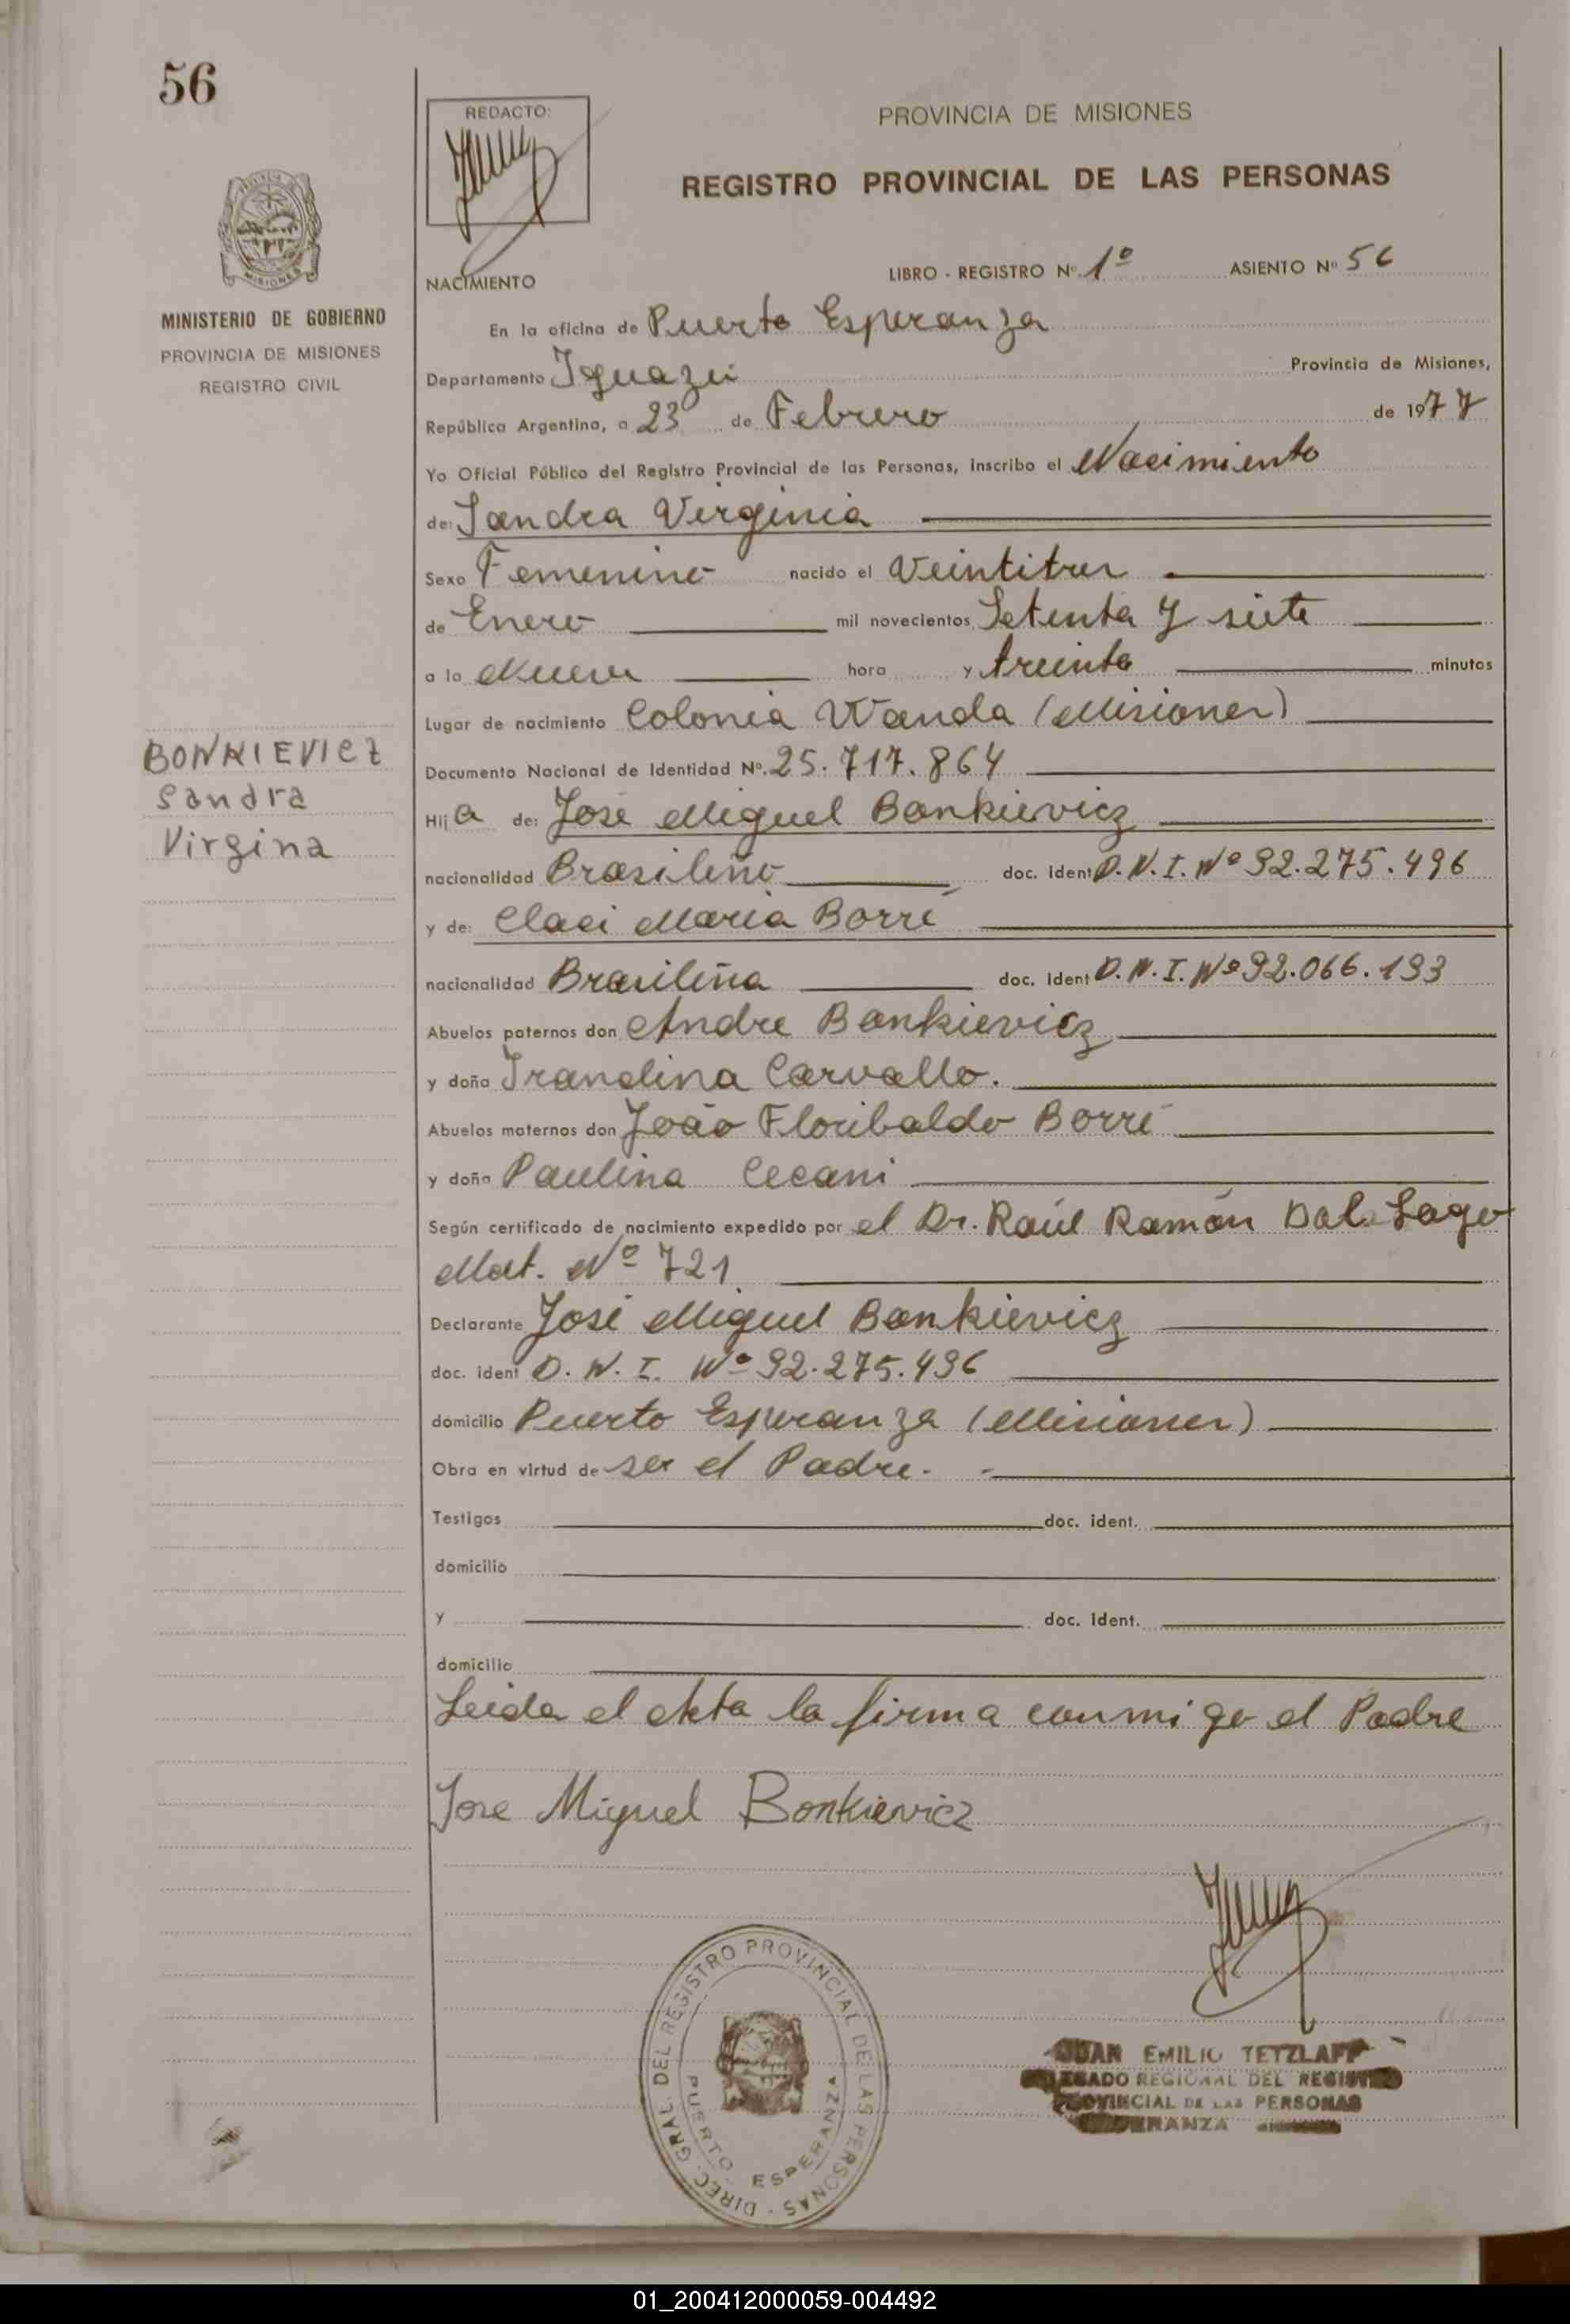 56
REDACTO:
PROVINCIA DE MISIONES
REGISTRO PROVINCIAL DE LAS PERSONAS
NACIMIENTO
LIBRO - REGISTRO Nº. 1º ASIENTO Nº 56
MINISTERIO DE GOBIERNO
PROVINCIA DE MISIONES
REGISTRO CIVIL
En la oficina de Puerto Esperanza
Departamento Iguazú Provincia de Misiones,
República Argentina, a 23 de Febrero de 1977
Yo Oficial Público del Registro Provincial de las Personas, inscribo el Nacimiento
de: Sandra Virginia
Sexo Femenino nacido el Veintitres
de Enero mil novecientos Setenta y siete
a la Nueve hora y treinta minutos
Lugar de nacimiento Colonia Wanda (Misiones)
BONKIEVICZ
Sandra
Virgina
Documento Nacional de Identidad Nº. 25.717.864
Hija de: José Miguel Bonkievicz
nacionalidad Brasileño doc. ident D.N.I. Nº 92.275.496
y de: Claci Maria Borré
nacionalidad Brasileña doc. ident D.N.I. Nº 92.066.193
Abuelos paternos don Andre Bonkievicz
y doña Irandina Carvallo.
Abuelos maternos don João Floribaldo Borré
y doña Paulina Cecani
Según certificado de nacimiento expedido por el Dr. Raúl Ramón Dal Lago
Mat. Nº 721
Declarante José Miguel Bonkievicz
doc. ident D.N.I. Nº 92.275.496
domicilio Puerto Esperanza (Misiones)
Obra en virtud de ser el Padre.
Testigos doc. ident.
domicilio
y doc. ident.
domicilio
Leida el Acta la firma conmigo el Padre
Jose Miguel Bonkievicz
DIREC. GRAL. DEL REGISTRO PROVINCIAL DE LAS PERSONAS
PUERTO ESPERANZA
JUAN EMILIO TETZLAFF
REGIONAL DEL
DE LAS PERSONAS
01_200412000059-004492